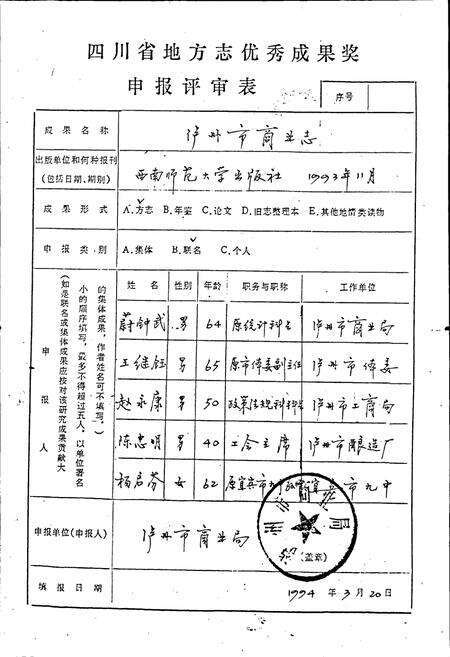 四川省地方志优秀成果奖
申报评审表
序号
成果名称 泸州市商业志
出版单位和何种报刊(包括日期、期别) 西南师范大学出版社 1993年11月
成果形式 A.方志 B.年鉴 C.论文 D.旧志整理本 E.其他地情类读物
申报类别 A.集体 B.联名 C.个人
申报人
(如是联名或集体成果应按对该研究成果贡献大
小的顺序填写,最多不得超过五人,以单位署名
的集体成果,作者姓名可不填写。)
姓名 性别 年龄 职务与职称 工作单位
蔚钟武 男 64 原统计科长 泸州市商业局
王继钰 男 65 原市体委副主任 泸州市体委
赵永康 男 50 政策法规科科长 泸州市工商局
陈忠明 男 40 工会主席 泸州市酿造厂
杨启芬 女 62 原宜宾市九 市九中
申报单位(申报人) 泸州市商业局
(盖章)
填报日期 1994年3月20日